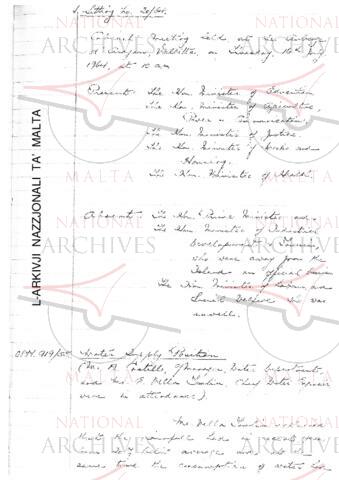 1. Sitting No. 20/64.
Cabinet Meeting held at the Auberge
d'Aragon, Valletta, on Tuesday, 14th July
1964, at 10 a.m.
Present: The Hon. Minister of Education
The Hon. Minister of Agriculture,
Power & Communications.
The Hon. Minister of Justice.
The Hon. Minister of Works and
Housing.
The Hon. Minister of Health.
Absent: The Hon. Prime Minister and
The Hon. Minister of Industrial
Development & Tourism,
who were away from the
Island on official business
The Hon. Minister of Labour and
Social Welfare who was
unwell.
Water Supply Position
(Mr. A. Manager, Water Department,
and Mr. P. Della Chief Water Engineer
were in attendance).
Mr. Della
that the rainfall
average and at the
same time the consumption of water had
L-ARKIVJI NAZZJONALI TA' MALTA
NATIONAL
ARCHIVES
NATIONAL
ARCHIVES
NATIONAL
ARCHIVES
NATIONAL
ARCHIVES
NATIONAL
ARCHIVES
NATIONAL
ARCHIVES
NATIONAL
NATIONAL